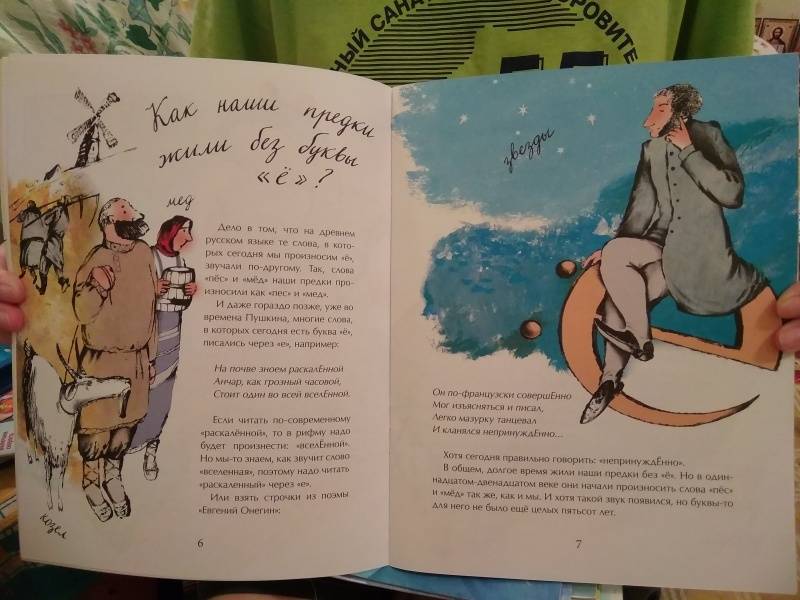 НЫЙ САНАТ
ОРОВИТЕ
Как наши предки
жили без буквы
«ё»?
мед
Дело в том, что на древнем
русском языке те слова, в ко-
торых сегодня мы произносим «ё»,
звучали по-другому. Так, слова
«пёс» и «мёд» наши предки про-
износили как «пес» и «мед».
И даже гораздо позже, уже во
времена Пушкина, многие слова,
в которых сегодня есть буква «ё»,
писались через «е», например:
На почве зноем раскалЕнной
Анчар, как грозный часовой,
Стоит один во всей вселЕнной.
Если читать по-современному
«раскалённой», то в рифму надо
будет произнести: «вселЁнной».
Но мы-то знаем, как звучит слово
«вселенная», поэтому надо читать
«раскаленный» через «е».
Или взять строчки из поэмы
«Евгений Онегин»:
козел
6
звезды
Он по-французски совершЕнно
Мог изъясняться и писал,
Легко мазурку танцевал
И кланялся непринуждЕнно...
Хотя сегодня правильно говорить: «непринуждЁнно».
В общем, долгое время жили наши предки без «ё». Но в один-
надцатом-двенадцатом веке они начали произносить слова «пёс»
и «мёд» так же, как и мы. И хотя такой звук появился, но буквы-то
для него не было ещё целых пятьсот лет.
7